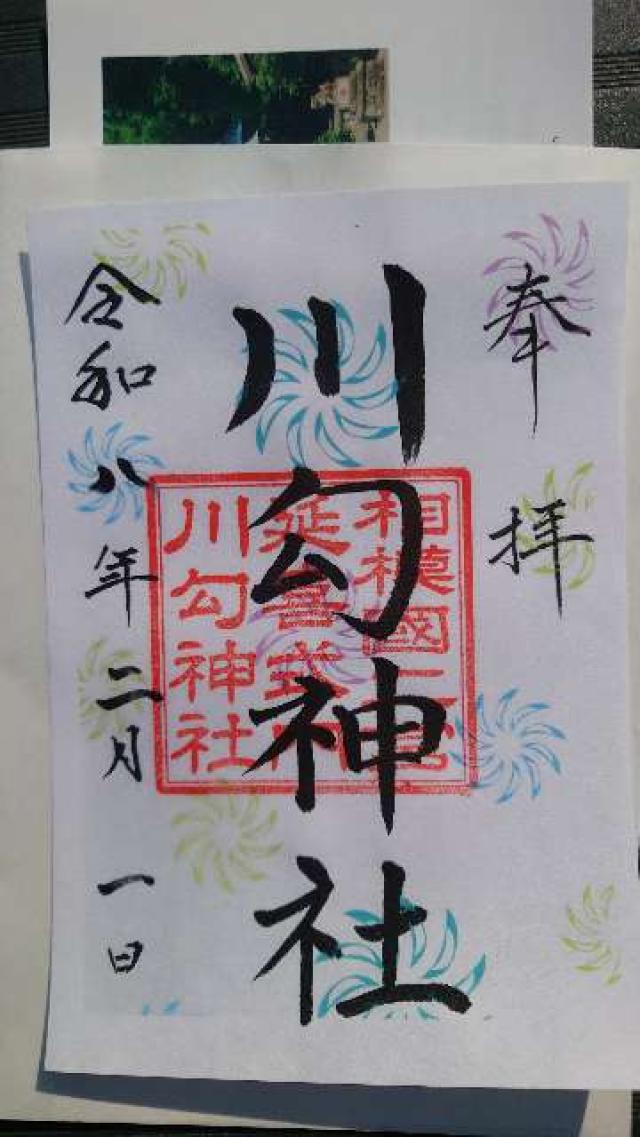 奉拝
川勾神社
相模國二之宮
延喜式内
川勾神社
令和八年二月一日